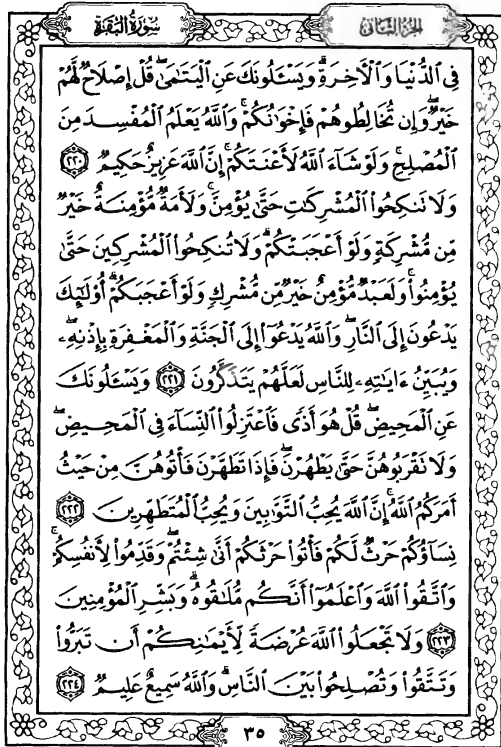 سورة البقرة
الجزء الثاني
فِي الدُّنْيَا وَالْآخِرَةِ وَيَسْـَٔلُونَكَ عَنِ الْيَتَـٰمَىٰ قُلْ إِصْلَاحٌ لَّهُمْ
خَيْرٌ وَإِن تُخَالِطُوهُمْ فَإِخْوَٰنُكُمْ وَاللَّهُ يَعْلَمُ الْمُفْسِدَ مِنَ
الْمُصْلِحِ وَلَوْ شَآءَ اللَّهُ لَأَعْنَتَكُمْ إِنَّ اللَّهَ عَزِيزٌ حَكِيمٌ ٢٢٠
وَلَا تَنكِحُوا الْمُشْرِكَـٰتِ حَتَّىٰ يُؤْمِنَّ وَلَأَمَةٌ مُّؤْمِنَةٌ خَيْرٌ
مِّن مُّشْرِكَةٍ وَلَوْ أَعْجَبَتْكُمْ وَلَا تُنكِحُوا الْمُشْرِكِينَ حَتَّىٰ
يُؤْمِنُوا وَلَعَبْدٌ مُّؤْمِنٌ خَيْرٌ مِّن مُّشْرِكٍ وَلَوْ أَعْجَبَكُمْ أُو۟لَـٰٓئِكَ
يَدْعُونَ إِلَى النَّارِ وَاللَّهُ يَدْعُوٓا إِلَى الْجَنَّةِ وَالْمَغْفِرَةِ بِإِذْنِهِۦ
وَيُبَيِّنُ ءَايَـٰتِهِۦ لِلنَّاسِ لَعَلَّهُمْ يَتَذَكَّرُونَ ٢٢١ وَيَسْـَٔلُونَكَ
عَنِ الْمَحِيضِ قُلْ هُوَ أَذًى فَاعْتَزِلُوا النِّسَآءَ فِي الْمَحِيضِ
وَلَا تَقْرَبُوهُنَّ حَتَّىٰ يَطْهُرْنَ فَإِذَا تَطَهَّرْنَ فَأْتُوهُنَّ مِنْ حَيْثُ
أَمَرَكُمُ اللَّهُ إِنَّ اللَّهَ يُحِبُّ التَّوَّٰبِينَ وَيُحِبُّ الْمُتَطَهِّرِينَ ٢٢٢
نِسَآؤُكُمْ حَرْثٌ لَّكُمْ فَأْتُوا حَرْثَكُمْ أَنَّىٰ شِئْتُمْ وَقَدِّمُوا لِأَنفُسِكُمْ
وَاتَّقُوا اللَّهَ وَاعْلَمُوٓا أَنَّكُم مُّلَـٰقُوهُ وَبَشِّرِ الْمُؤْمِنِينَ
٢٢٣ وَلَا تَجْعَلُوا اللَّهَ عُرْضَةً لِّأَيْمَـٰنِكُمْ أَن تَبَرُّوا
وَتَتَّقُوا وَتُصْلِحُوا بَيْنَ النَّاسِ وَاللَّهُ سَمِيعٌ عَلِيمٌ ٢٢٤
٣٥